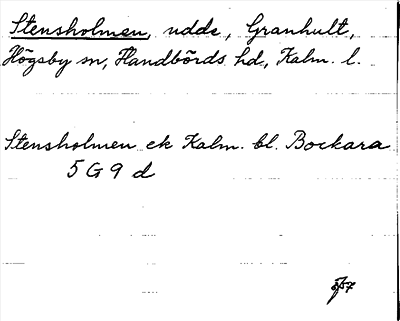 Stensholmen, udde, Granhult,
Högsby sn, Handbörds hd, Kalm. l.
Stensholmen ek Kalm. bl. Bockara
5 G 9 d